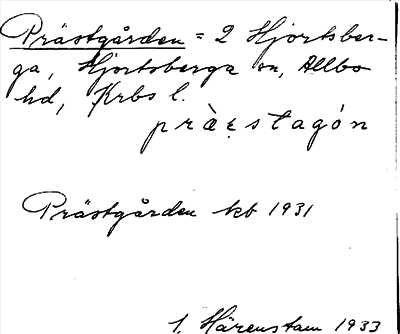 Prästgården = 2 Hjortsber-
ga, Hjortsberga sn, Allbo
hd, Krbs l.
præ̀stagón
Prästgården kb 1931
1. Härenstam 1933